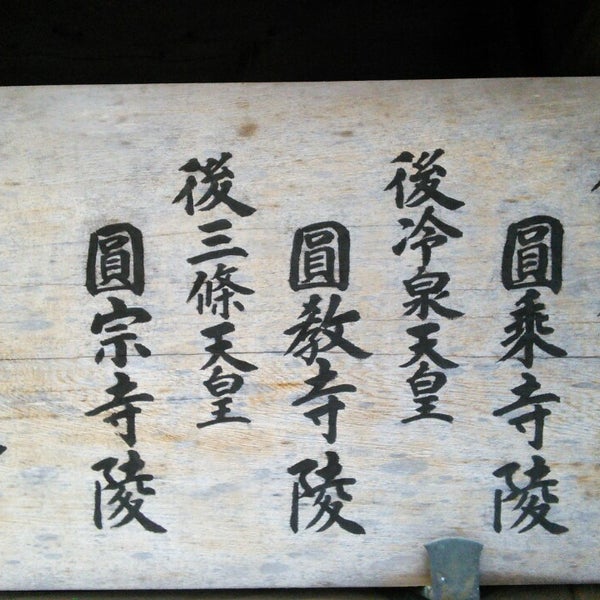 圓乘寺陵
後冷泉天皇
圓教寺陵
後三條天皇
圓宗寺陵